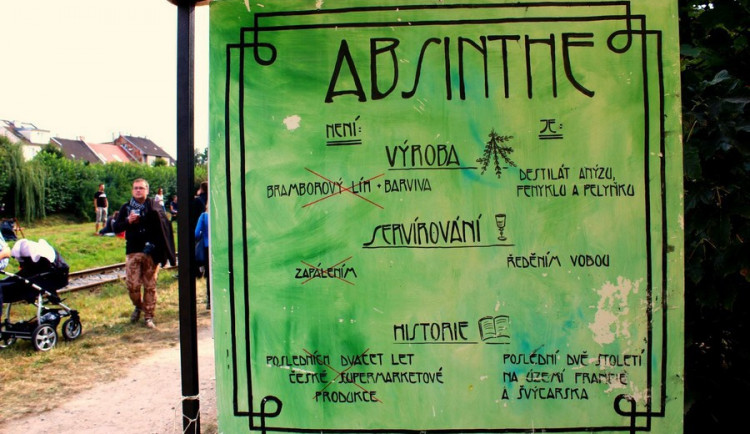 ABSINTHE
NENÍ:
JE:
VÝROBA
BRAMBOROVÝ LÍH + BARVIVA
DESTILÁT ANÝZU,
FENYKLU A PELYŇKU
SERVÍROVÁNÍ
ZAPÁLENÍM
ŘEDĚNÍM VODOU
HISTORIE
POSLEDNÍCH DVACET LET
ČESKÉ SUPERMARKETOVÉ
PRODUKCE
POSLEDNÍ DVĚ STOLETÍ
NA ÚZEMÍ FRANCIE
A ŠVÝCARSKA